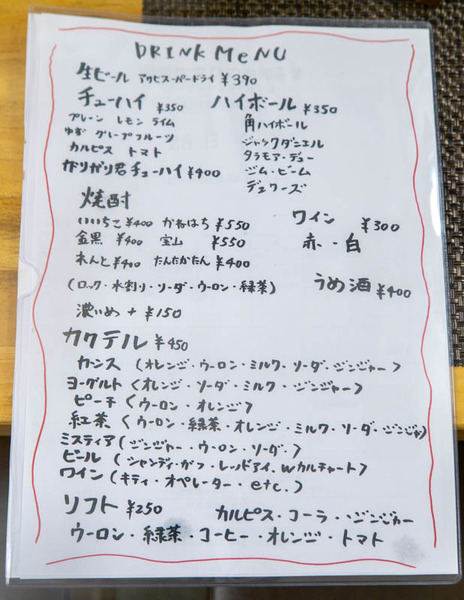 DRINK MeNU
生ビール アサヒスーパードライ ¥390
チューハイ ¥350
プレーン レモン ライム
ゆず グレープフルーツ
カルピス トマト
ガリガリ君チューハイ ¥400
ハイボール ¥350
角ハイボール
ジャックダニエル
タラモア・デュー
ジム・ビーム
デュワーズ
焼酎
いいちこ ¥400 かねはち ¥550
金黒 ¥400 宝山 ¥550
れんと ¥400 たんたかたん ¥400
(ロック・水割り・ソーダ・ウーロン・緑茶)
濃いめ + ¥150
ワイン ¥300
赤・白
うめ酒 ¥400
カクテル ¥450
カシス (オレンジ・ウーロン・ミルク・ソーダ・ジンジャー)
ヨーグルト (オレンジ・ソーダ・ミルク・ジンジャー)
ピーチ (ウーロン・オレンジ)
紅茶 (ウーロン・緑茶・オレンジ・ミルク・ソーダ・ジンジャー)
ミスティア (ジンジャー・ウーロン・ソーダ・)
ビール (シャンディ・ガフ・レッドアイ・wカルチャード)
ワイン (キティ・オペレーター・etc.)
ソフト ¥250 カルピス・コーラ・ジンジャー
ウーロン・緑茶・コーヒー・オレンジ・トマト